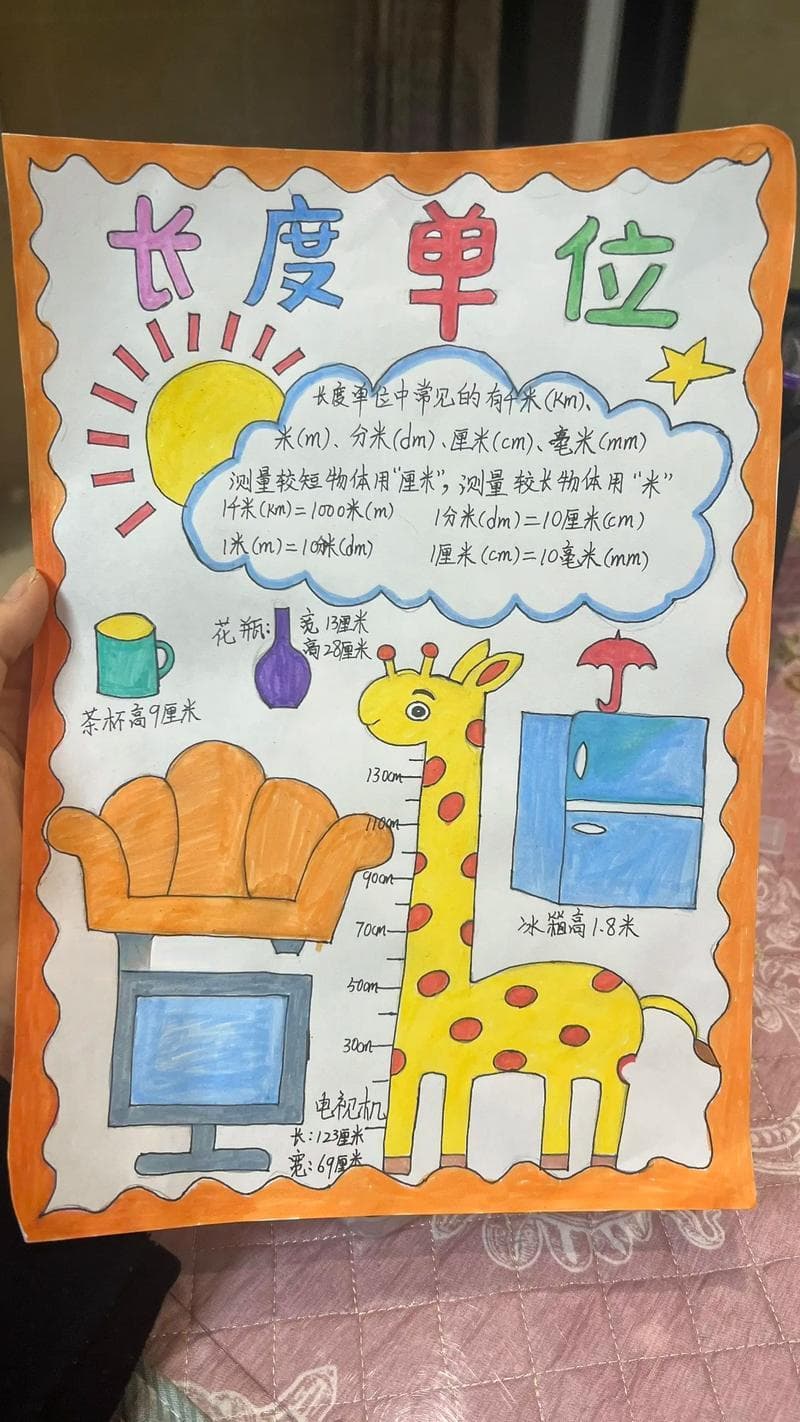 长度单位
长度单位中常见的有千米(Km)、
米(m)、分米(dm)、厘米(cm)、毫米(mm)
测量较短物体用"厘米"，测量较长物体用"米"
1千米(Km)=1000米(m) 1分米(dm)=10厘米(cm)
1米(m)=10分米(dm) 1厘米(cm)=10毫米(mm)
花瓶: 宽13厘米
高28厘米
茶杯高9厘米
130cm
110cm
90cm
70cm
50cm
30cm
冰箱高1.8米
电视机
长:123厘米
宽:69厘米